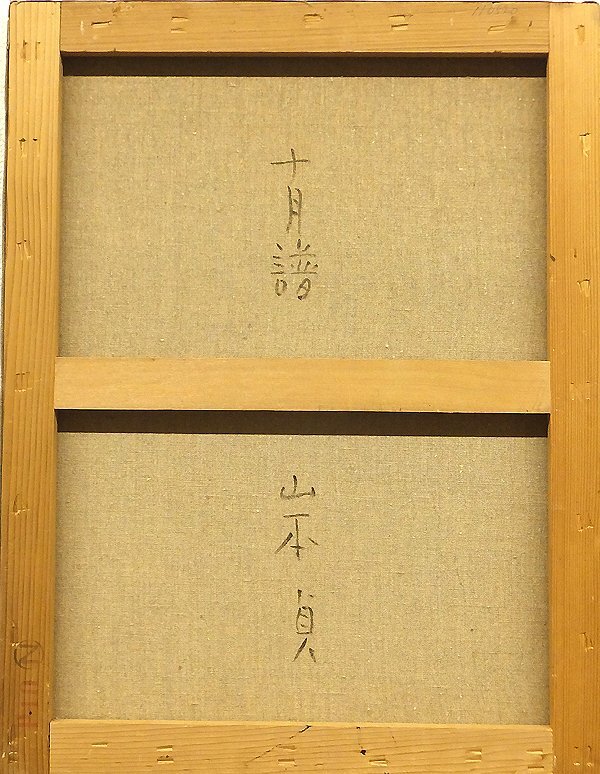 十月譜
山本 貞